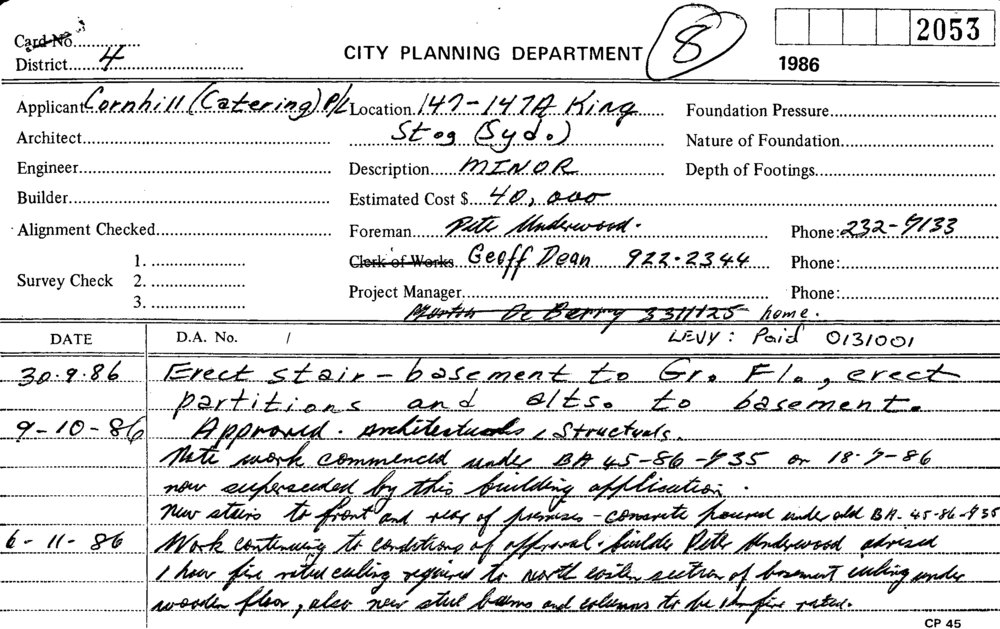 Card No.
District 4
CITY PLANNING DEPARTMENT
8
2053
1986
Applicant Cornhill (Catering) P/L Location 147-147A King
Foundation Pressure
Architect
Sts (Syd.)
Nature of Foundation
Engineer
Description MINOR
Depth of Footings
Builder
Estimated Cost $ 40,000
Alignment Checked
Foreman Pete Underwood.
Phone: 232-7133
Clerk of Works Geoff Dean 922-2344
Phone:
Survey Check 1.
2.
3.
Project Manager
Phone:
De Berry 3311125 home.
DATE
D.A. No. /
LEVY: Paid 0131001
30.9.86 Erect stair - basement to Gr. Fl., erect
partitions and alts. to basement.
9-10-86 Approved. Architecturals, Structurals.
Note work commenced under BA 45-86-735 on 18-7-86
now superseded by this building application.
New stairs to front and rear of premises - concrete poured under old BA. 45-86-735
6-11-86 Work continuing to conditions of approval. builder Pete Underwood advised
1 hour fire rated ceiling required to north easter section of basement ceiling under
wooden floor, also new steel beams and columns to be 1 hr fire rated.
CP 45